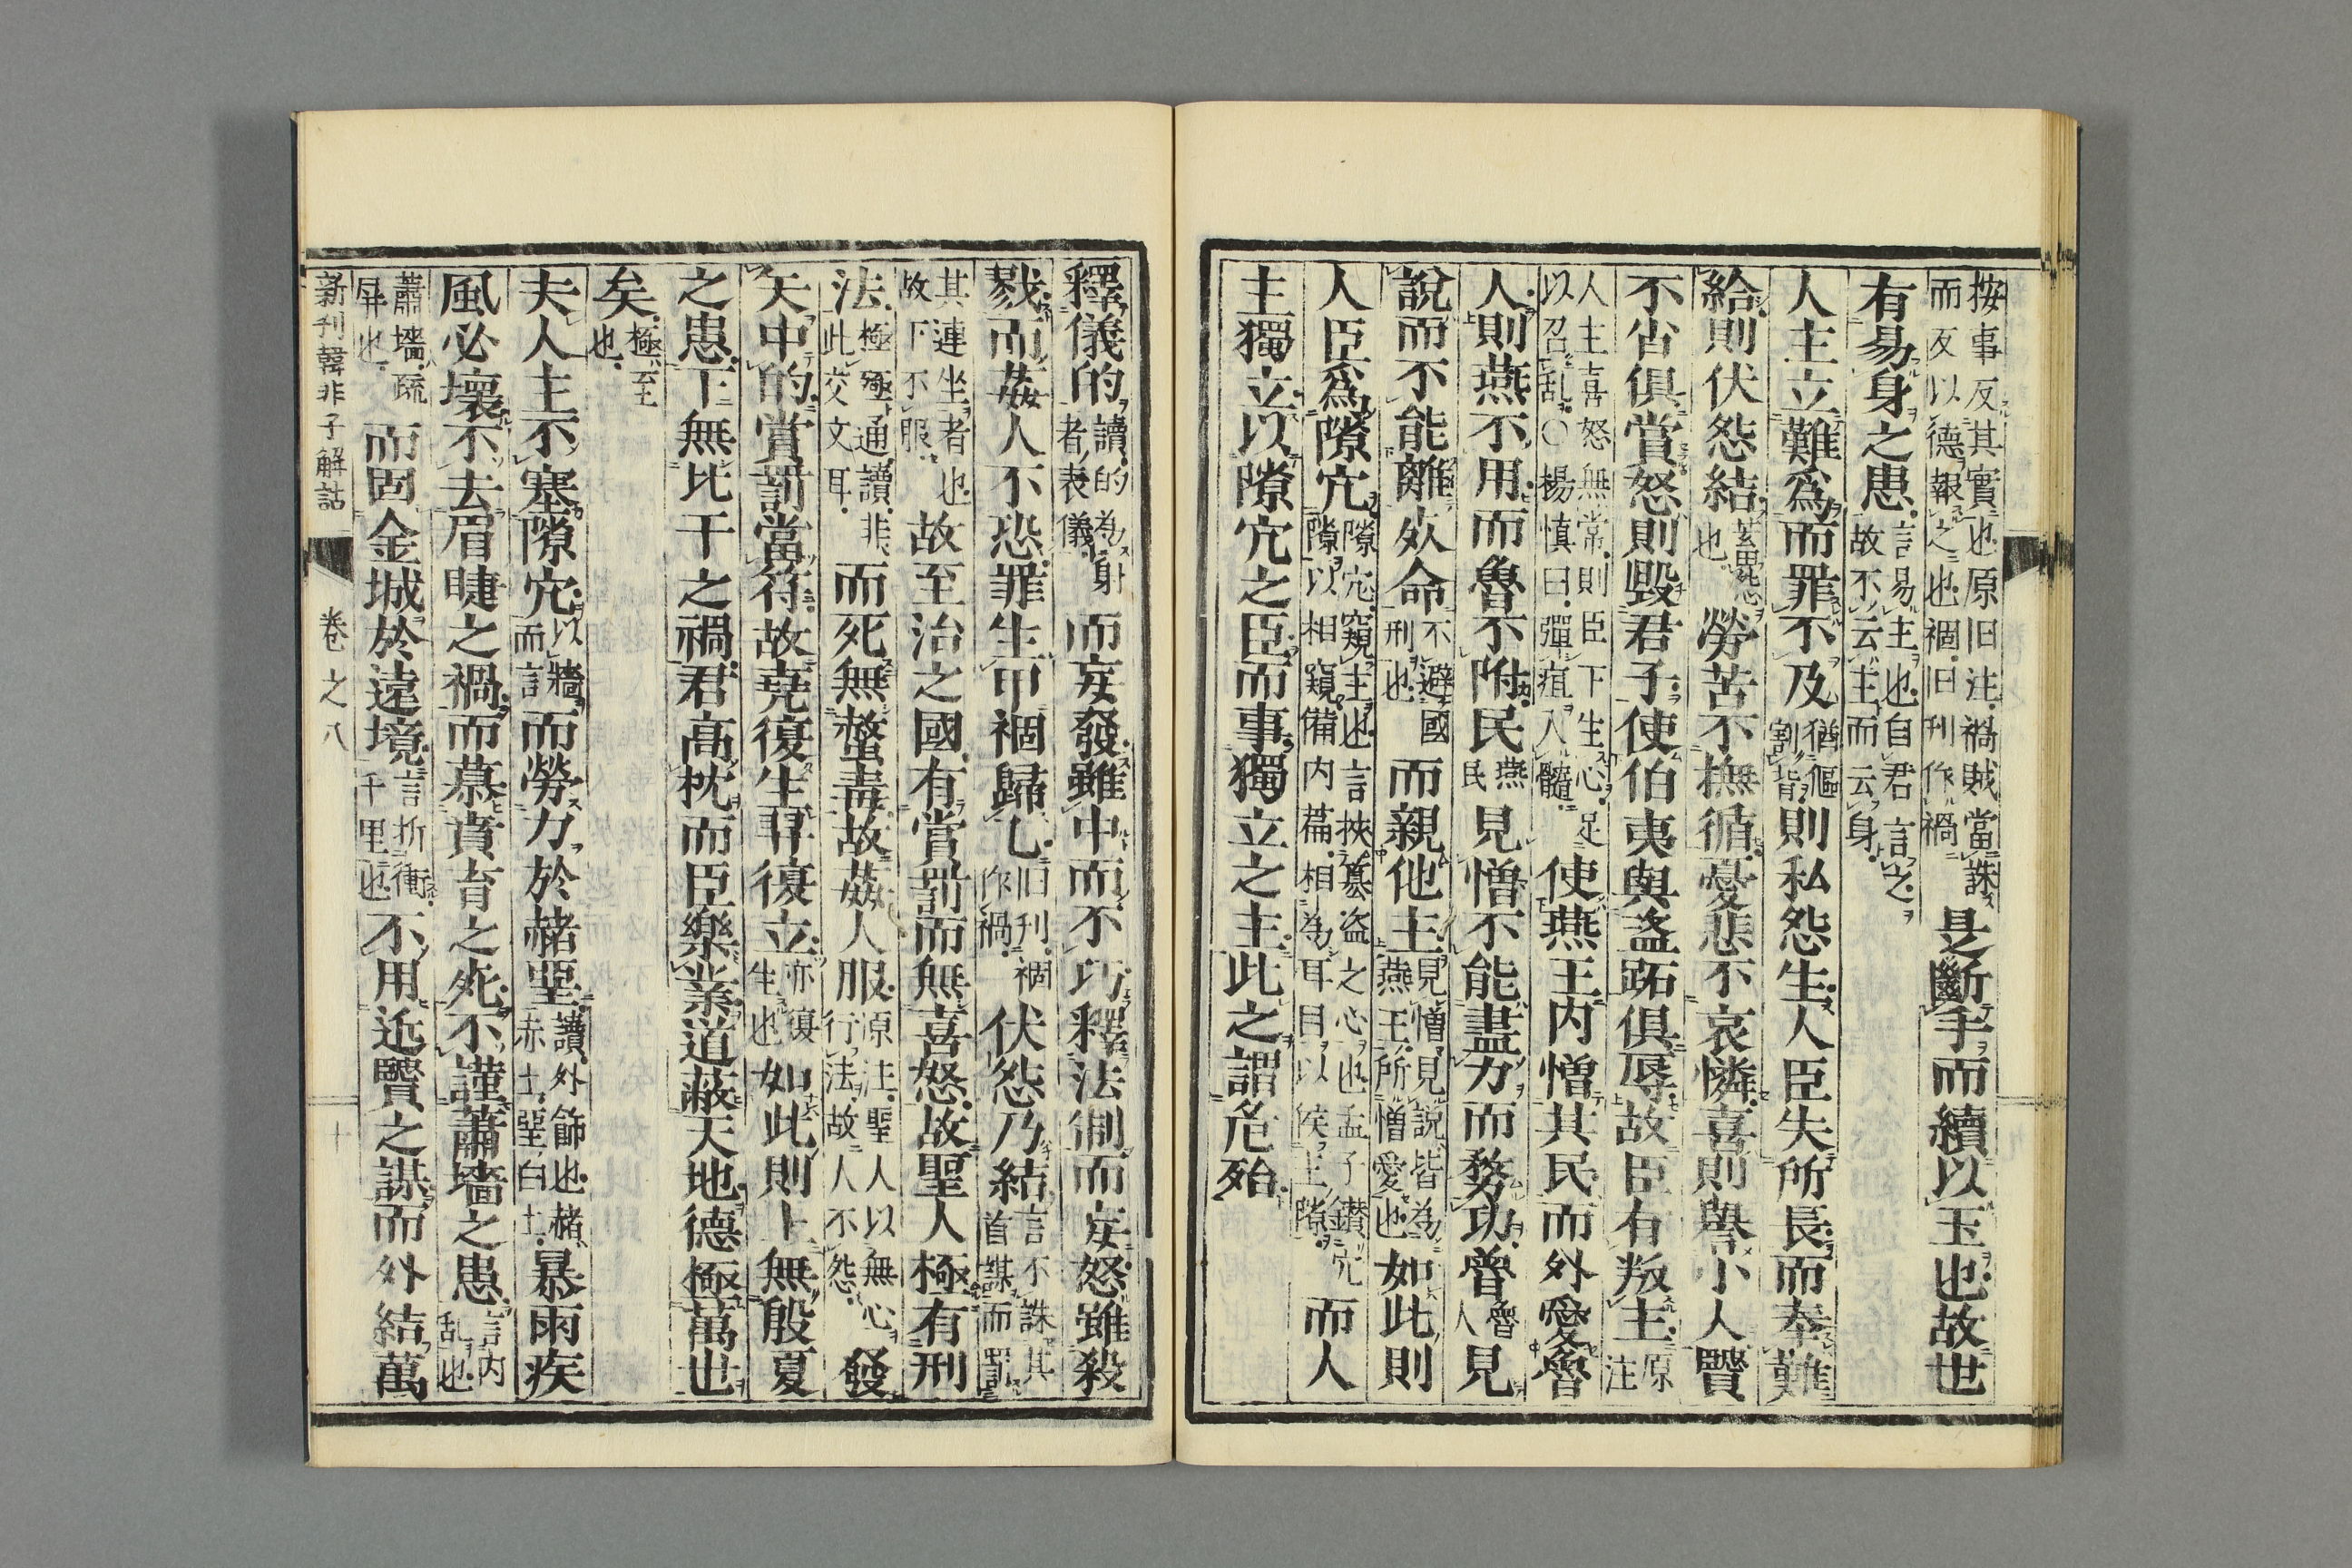 按事反其實也原旧注禍賊當誅而反以德報之也祻旧刊作禍是斷手而續以玉也故世
有易身之患言易主也自君言之故不云主而云身
人主立難爲而罪不及猶傴割背則私怨生人臣失所長而奉難
給則伏怨結也勞苦不撫循憂悲不哀憐喜則譽小人賢
不肖俱賞怒則毀君子使伯夷與盜跖俱辱故臣有叛主原注
人主喜怒無常則臣下生心足以召乱〇楊慎曰彈疽入髓使燕王内憎其民而外愛魯
人則燕不用而魯不附民燕民見憎不能盡力而務功魯魯人見
說而不能離死命不避國刑也而親他主見憎見說皆為燕王所憎愛也如此則
人臣爲隙穴隙穴窺主也言挾簒盗之心也孟子鑽穴隙以相窺備内篇相為耳目以候主隙而人
主獨立以隙穴之臣而事獨立之主此之謂危殆
釋儀的讀的為射者表儀而妄發雖中而不巧釋法制而妄怒雖殺
戮而姦人不恐罪生甲祻歸乙旧刊祻作禍伏怨乃結言不誅其首謀而罰
其連坐者也故下不服故至治之國有賞罰而無喜怒故聖人極有刑
法極殛通讀非此交文耳而死無螫毒故姦人服原注聖人以無心行法故人不怨發
矢中的賞罰當符故堯復生羿復立亦復生也如此則上無殷夏
之患下無比干之禍君高枕而臣樂業道蔽天地德極萬世
矣極至也
夫人主不塞隙穴以牆而言而勞力於赭堊讀外飾也赭赤土堊白土暴雨疾
風必壞不去眉睫之禍而慕賁育之死不謹蕭墻之患言内乱也
蕭墻疏屏也而固金城於遠境言折衝千里也不用近賢之謀而外結萬
新刊韓非子解詁 卷之八 十